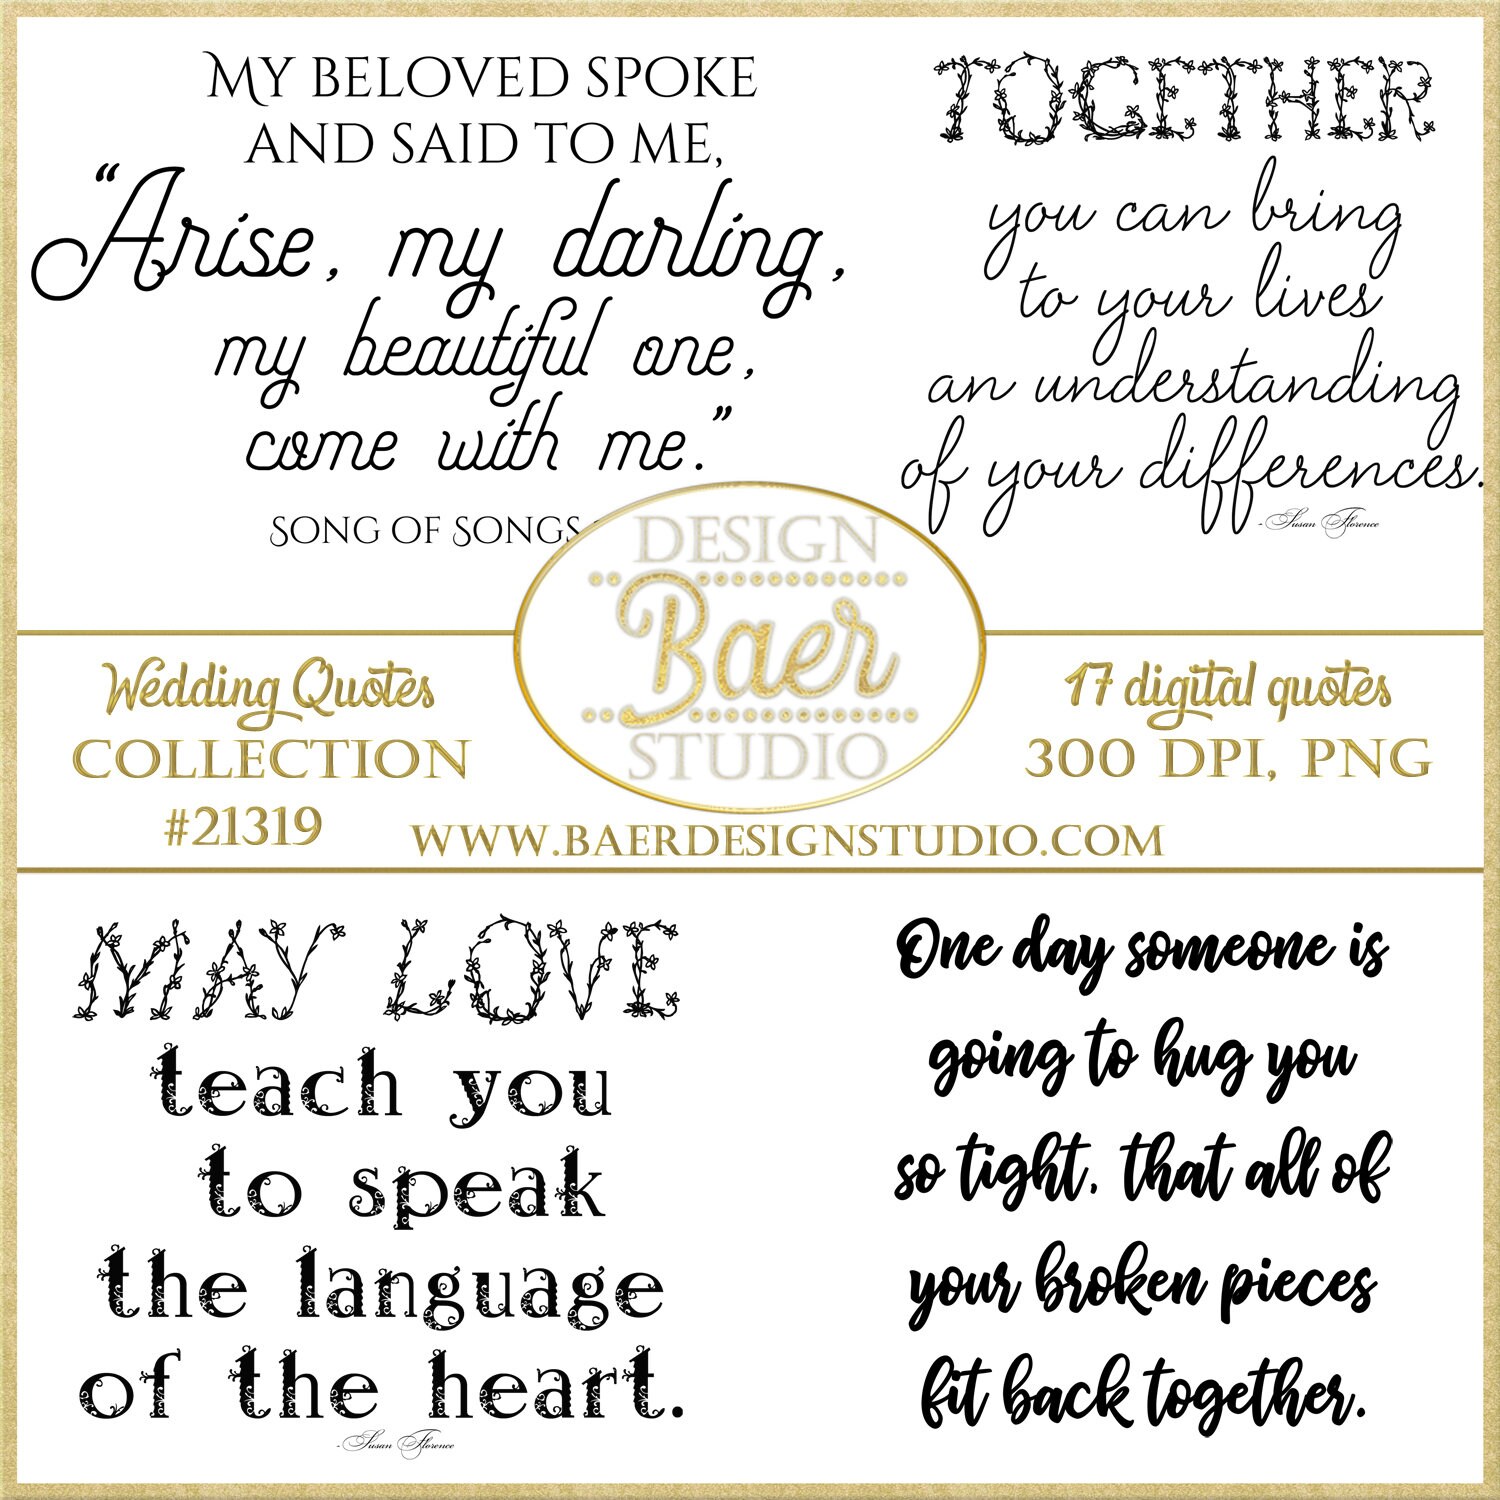 MY BELOVED SPOKE
AND SAID TO ME,
“Arise, my darling,
my beautiful one,
come with me.”
SONG OF SONGS
TOGETHER
you can bring
to your lives
an understanding
of your differences.
- Susan Florence
DESIGN
Baer
STUDIO
Wedding Quotes
COLLECTION
#21319
17 digital quotes
300 DPI, PNG
WWW.BAERDESIGNSTUDIO.COM
MAY LOVE
teach you
to speak
the language
of the heart.
- Susan Florence
One day someone is
going to hug you
so tight, that all of
your broken pieces
fit back together.